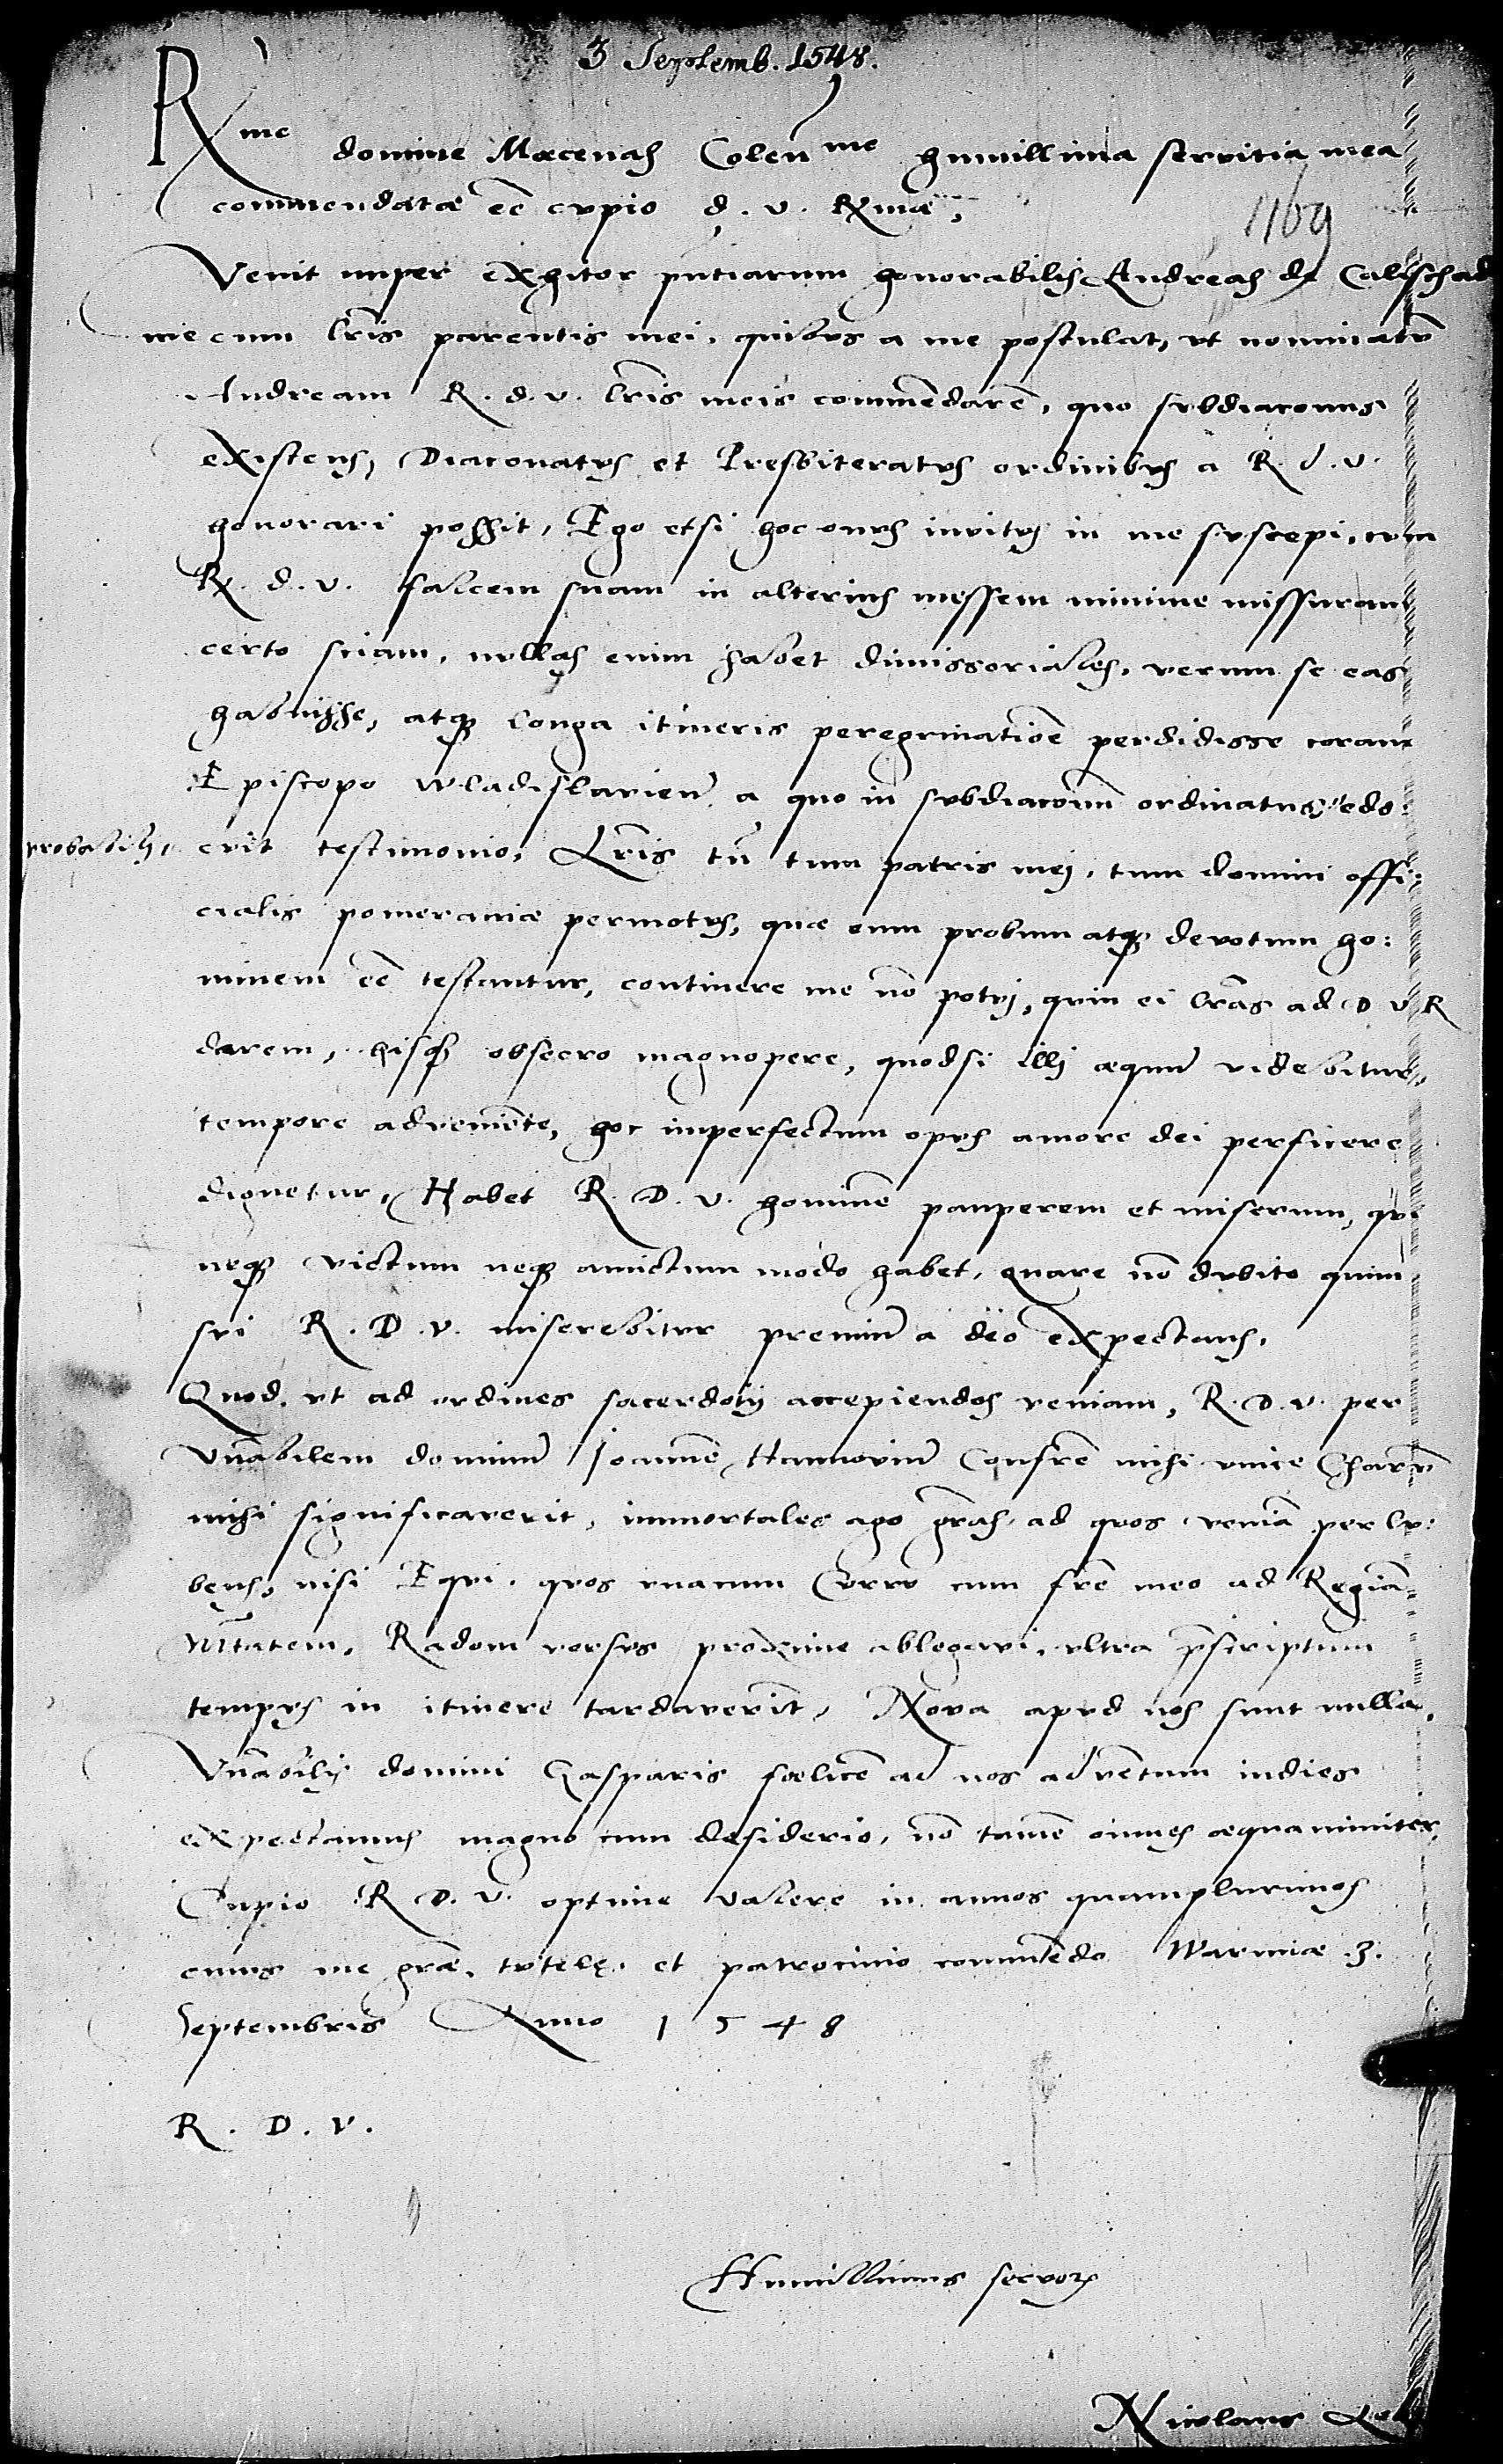 3 Septemb. 1548.
Rme domine Mœcenas Colenme humillima servitia mea
commendata eē cupio d. v. Rmæ,
1169
Venit nuper exhitor pntiarum honorabilis Andreas de Calisch ad
me cum lris parentis mei, quibus a me postulat, ut nominatū
Andream R. d. v. lris meis commēdarē, quo subdiaconus
existens, Diaconatus et Presbiteratus ordinibus a R. d. v.
honorari possit, Ego etsi hoc onus invitus in me suscepi, cum
R. d. v. falcem suam in alterius messem minime missuram
certo sciam, nullas enim habet dimissoriales, verum se eas
habuisse, atq longa itineris peregrinatiōe perdidisse coram
Episcopo Wladislavien a quo in subdiaconū ordinatus, edo:
probabili, cuit testimonio, Lris tn tum patris mei, tum domini offi:
cialis pomeraniæ permotus, quæ eum probum atq devotum ho:
minem eē testantur, continere me nō potui, quin ei lras ad D V R
darem, hisq obsecro magnopere, quodsi illi æquū videbitur,
tempore adveniēte, hoc imperfectum opus amore dei perficere
dignetur, Habet R. D. v. hominē pauperem et miserum, qui
neq victum neq amictum modo habet, quare nō dubito quin
sui R. D. v. miserebitur premiū a deo expectans,
Quod ut ad ordines sacerdotij accepiendos veniam, R. D. v. per
Vnabilem dominū Ioannē Hannoviū Confrē mihi unice Charū
mihi significaverit, immortales ago gras, ad quos veniā per lu:
bens, nisi Equi, quos unacum Curru cum frē meo ad Regiā
Mtatem, Radom versus proxime ablegavi, ultra p̄scriptum
tempus in itinere tardaverīt, Nova apud nos sunt nulla,
Vnabilis domini Gasparis fœlicē ad nos advētum indies
expectamus magno cum desiderio, nō tamē omnes æquanimiter,
Cupio R D. V. optime valere in annos quamplurimos
cuius me græ, tutelę, et patrocinio commēdo Warmiæ .3.
Septembris Anno 1548
R. D. V.
Humillimus servor
Nicolaus